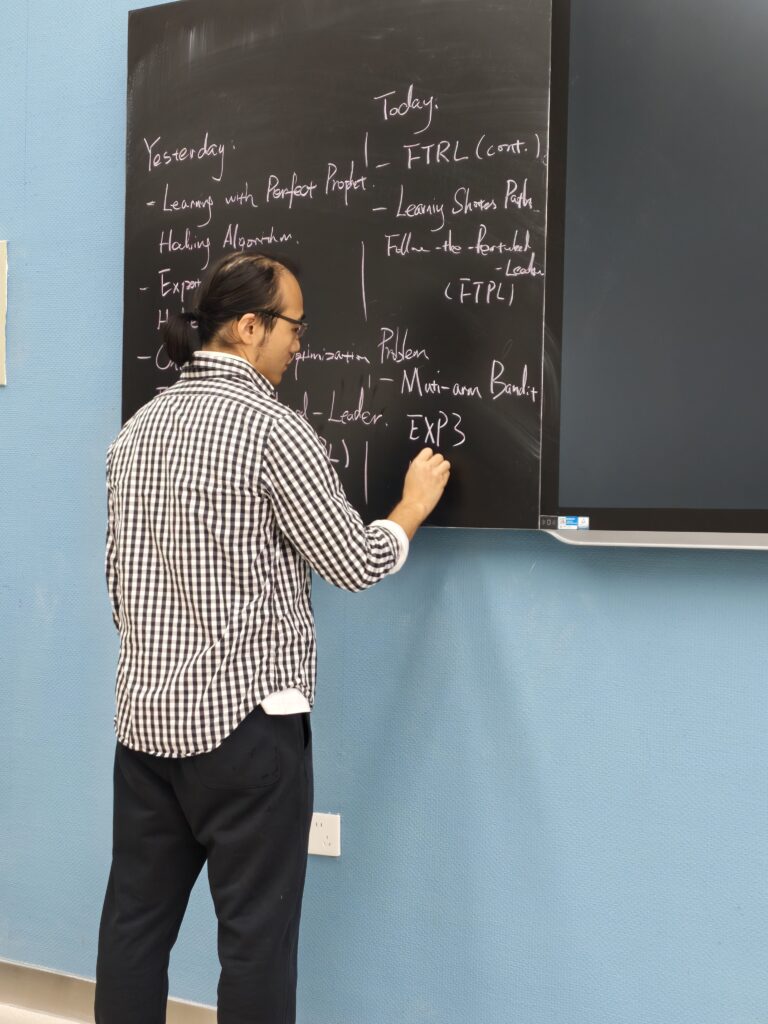 Yesterday:
- Learning with Perfect Prophet.
Halving Algorithm.
- Expert
Problem
- Leader.
Today:
- FTRL (cont.)
- Learning Shortes Path
Follow-the-Perturbed
-Leader
(FTPL)
- Muti-arm Bandit
EXP3